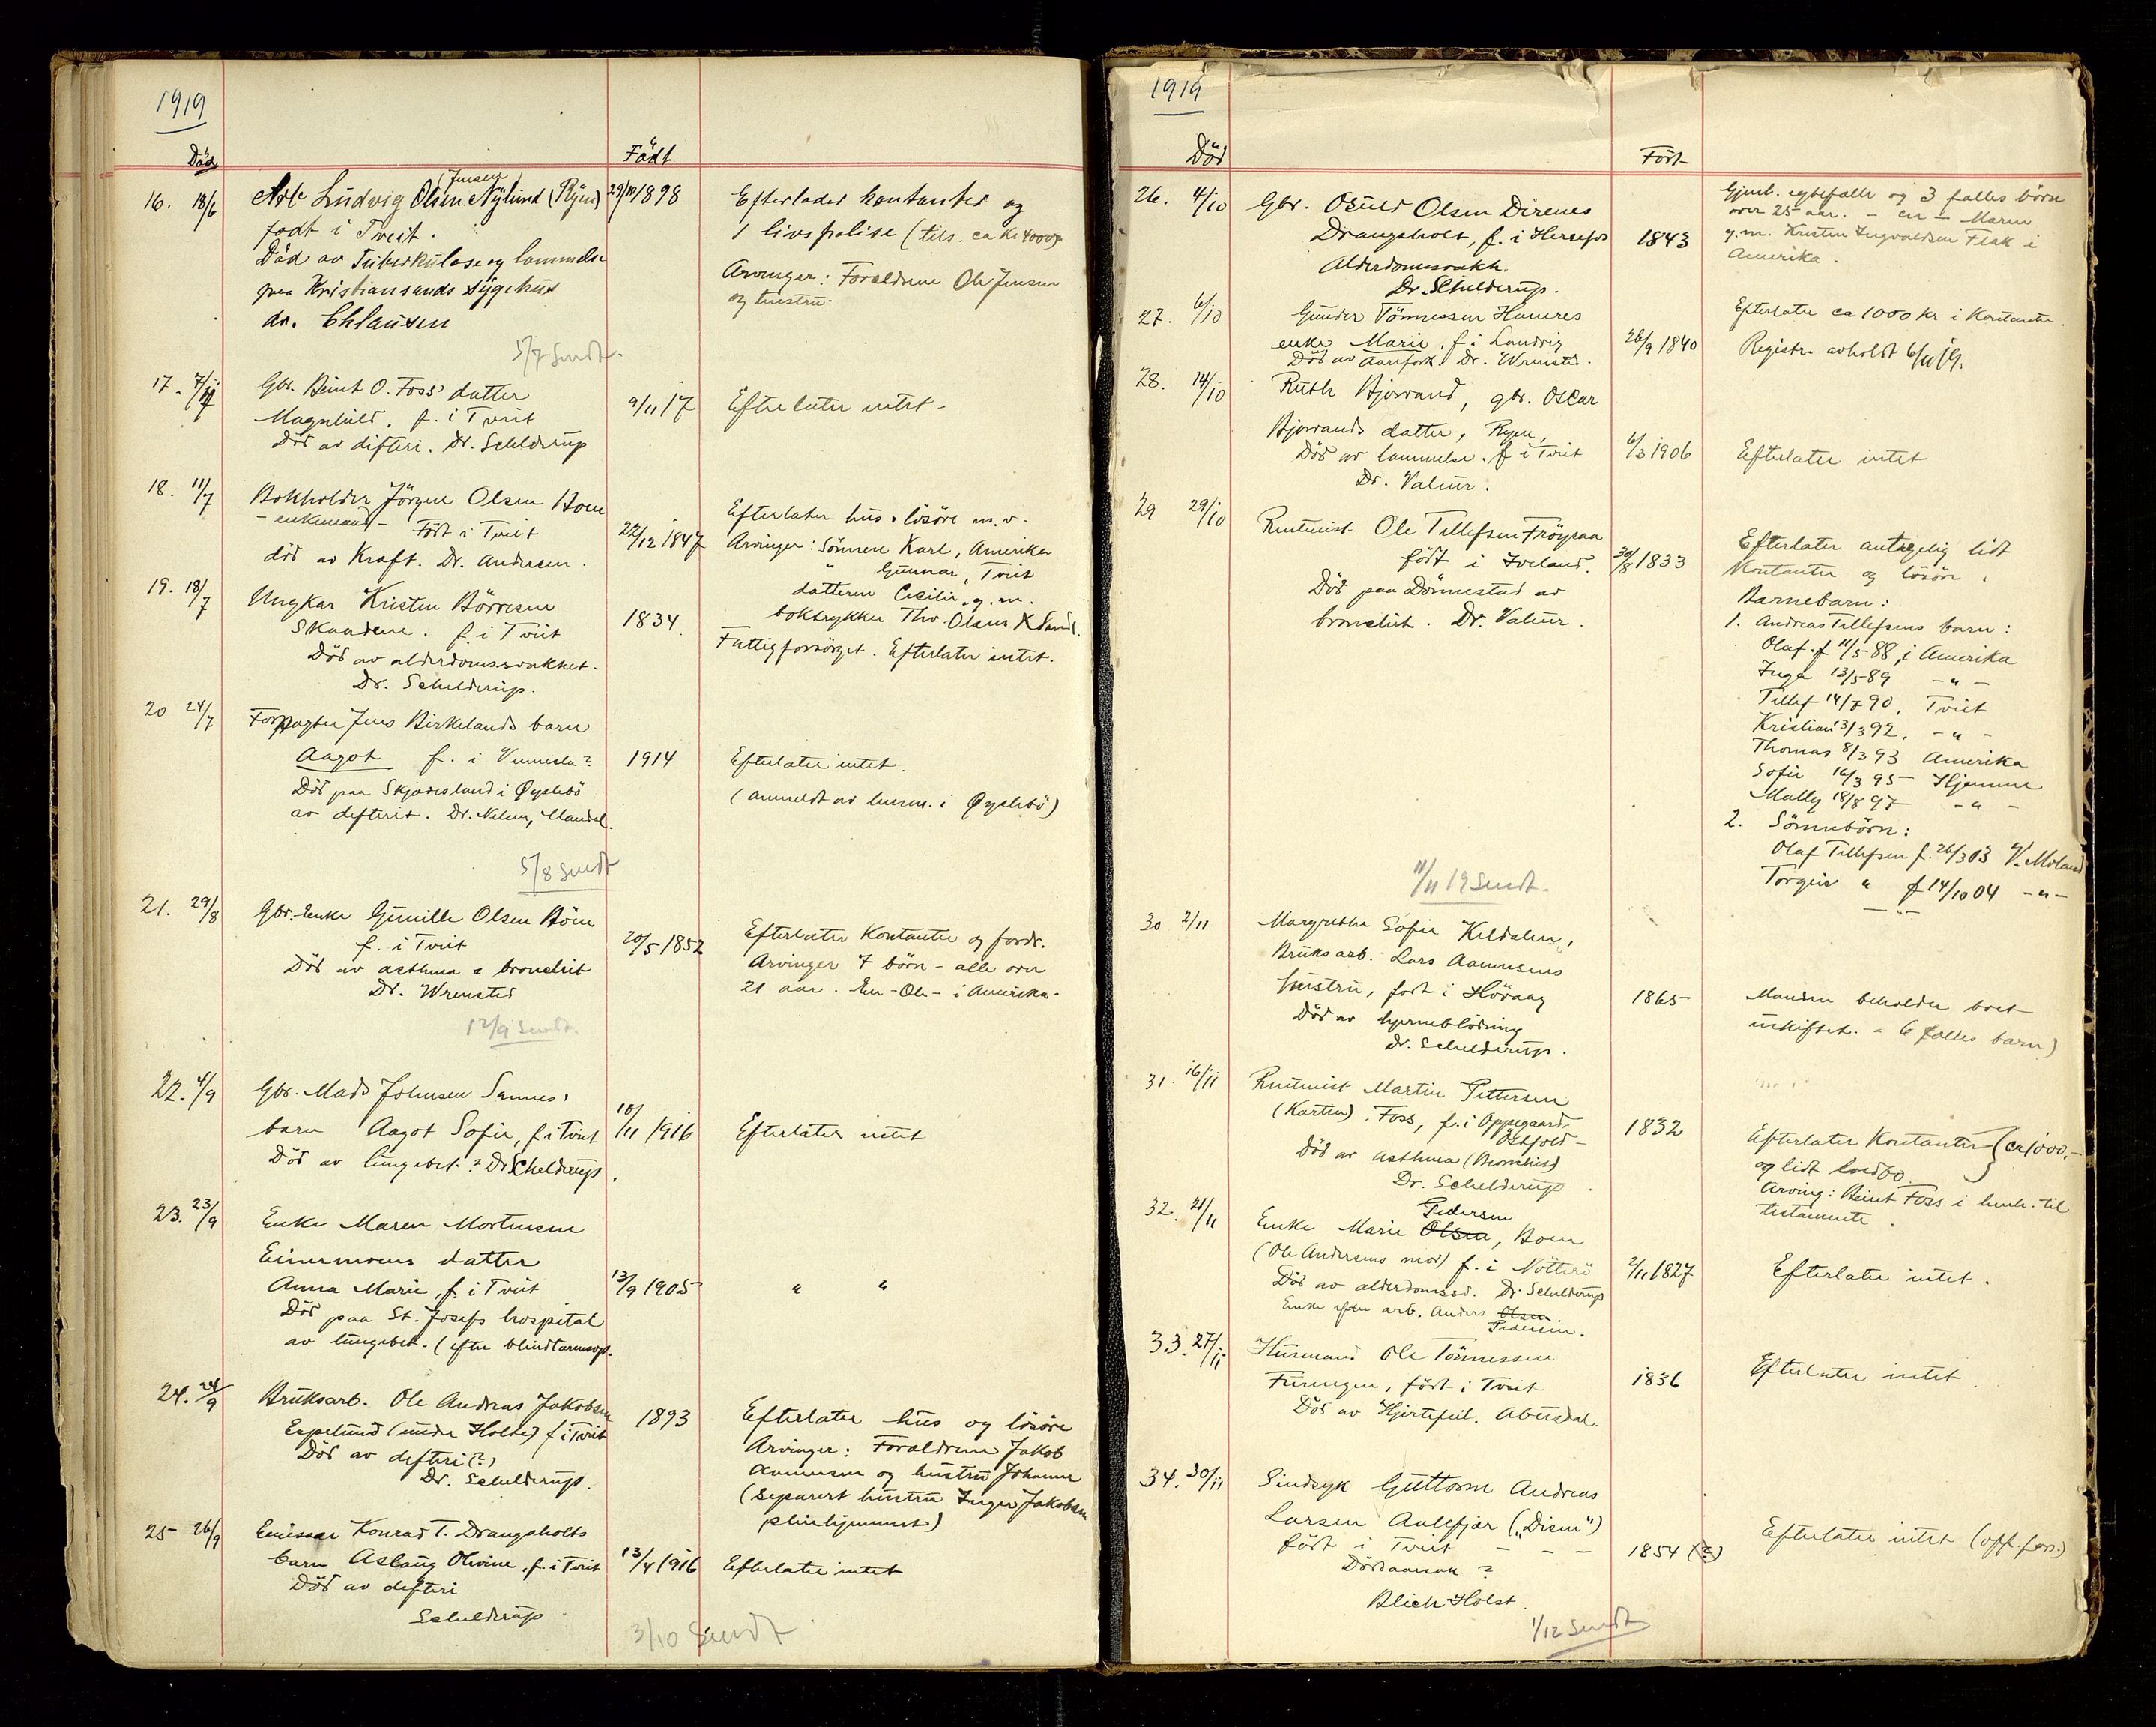 1919
Död
Födt
16. 18/6
(Jensen)
Arb. Ludvig Olsen Nylund (Ryen)
29/10 1898
Efterlader kontanter og
född i Tveit.
1 livspolise (tils. ca kr 4000
Död av Tuberkulose og lammelse
Arvinger: Forældrene Ole Jensen
paa Kristiansands sygehus
og hustru.
dr. Chlausen
5/7 Sendt.
17. 7/7
Gbr. Beint O. Foss' datter
9/11 17
Efterlater intet.
Magnhild, f. i Tveit
Död av difteri. Dr. Schelderup
18. 11/7
Bokholder Jörgen Olsen Boen
22/12 1847
Efterlater hus, lösöre m.v.
- enkemand - Född i Tveit
Arvinger: Sönnen Karl, Amerika
död av Kræft. Dr. Andersen.
" Gunnar, Tveit
datteren Cecilie, g.m.
boktrykker Thv. Olsen Kr.Sand.
19. 18/7
Ungkar Kristen Börresen
1834
Fattigforsörget. Efterlater intet.
Skaadene. f. i Tveit
Död av alderdomssvakhet.
Dr. Schelderup.
20 24/7
Forpagter Jens Birkelands barn
Aagot f. i Vennesla?
1914
Efterlater intet.
Död paa Skjævesland i Øyslebö
(anmeldt av lensm. i Øyslebö)
av difterit. Dr. Nilsen, Mandal.
5/8 Sendt
21. 29/8
Gbr.-Enke Gunille Olsen Böen
20/5 1852
Efterlater Kontanter og fordr.
f. i Tveit
Arvinger 7 börn - alle over
Död av asthma & bronchit
21 aar. En - Ole - i Amerika.
Dr. Wrensted
12/9 Sendt.
22. 4/9
Gbr. Mads Johnsen Sannes'
10/11 1916
Efterlater intet
barn Aagot Sofie, f. i Tveit
Död av lungebet.? Dr Schelderup.
23. 23/9
Enke Maren Mortensen
Einermoens datter
Anna Marie, f. i Tveit
13/9 1905
" "
Död paa St. Josefs hospital
av lungebet. (efter blindtarmsop.
24. 24/9
Bruksarb. Ole Andreas Jakobsen
1893
Efterlater hus og lösöre
Espelund (under Holte) f i Tveit
Arvinger: Forældrene Jakob
Död av difteri (?)
Aanensen og hustru Johanne
Dr. Schelderup.
(Separert hustru Inger Jakobsen
pleiehjemmet)
25 26/9
Emissær Konrad T. Drangsholts
barn Aslaug Olivine, f. i Tveit
13/4 1916
Efterlater intet
Död av difteri
Schelderup
3/10 Sendt
1919
Död
Född
26. 4/10
Gbr. Osuld Olsen Direnes
1843
Gjenl. egtefælle og 3 fælles börn
Drangsholt, f. i Herefos
over 25 aar. - en - Maren
Alderdomssvakh.
g.m. Kristen Ingvaldsen Flak i
Dr. Schelderup.
Amerika.
27. 6/10
Gunder Tönnessen Haneres
26/9 1840
Efterlater ca 1000 kr i Kontanter.
enke Marie, f. i Landvig
Registr. avholdt 6/11 19.
Död av Aarefork. Dr. Wrensted.
28. 14/10
Ruth Bjorvand, gbr. Oscar
Bjorvands datter, Ryen,
6/3 1906
Efterlater intet
Död av lammelse. f i Tveit
Dr. Valeur.
29 29/10
Rentenist Ole Tellefsen Fröysaa
30/8 1833
Efterlater antagelig lidt
född i Iveland.
Kontanter og lösöre.
Död paa Dönnestad av
Barnebarn:
bronchit. Dr. Valeur.
1. Andreas Tellefsens barn:
Olaf. f 11/5 88, i Amerika
Inga 13/5 89 - " -
Tellef 14/7 90, Tveit
Kristian 3/3 92, - " -
Thomas 8/3 93 Amerika
Sofie 16/3 95 Hjemme
Mally 18/8 97 - " -
2. Sönnebörn:
Olaf Tellefsen f. 26/3 03 V. Moland
Torgeir " f 14/10 04 - " -
11/11 19 Sendt.
30 2/11
Margrethe Sofie Kildalen,
Bruksarb. Lars Aanensens
hustru, född i Hövaag
1865
Manden beholder boet
Död av hjerneblödning
uskiftet. - 6 fælles barn)
Dr. Schelderup.
31. 16/11
Rentenist Martin Pettersen
(Karten). Foss, f. i Oppegaard
1832
Efterlater Kontanter } ca 1000.-
Östfold -
og lidt
Död av Asthma (Bronchit)
Arving: Beint Foss i henh. til
Dr. Schelderup
testamente.
32. 21/11
Pedersen
Enke Marie Olsen, Boen
(Ole Andersens mor) f. i Nötterö
2/11 1827
Efterlater intet.
Död av alderdomssv. Dr. Schelderup
Enke efter arb. Anders Olsen
Pedersen.
33. 27/11
Husmand Ole Tönnessen
1836
Efterlater intet.
Furingen, född i Tveit
Död av Hjertefeil. Abusdal.
34. 30/11
Sindsyk Guttorm Andreas
Larsen Aalefjær ("Disen")
född i Tveit - - -
1854 (?)
Efterlater intet (off. fors.)
Dödsaarsak ?
Blich Holst.
1/12 Sendt